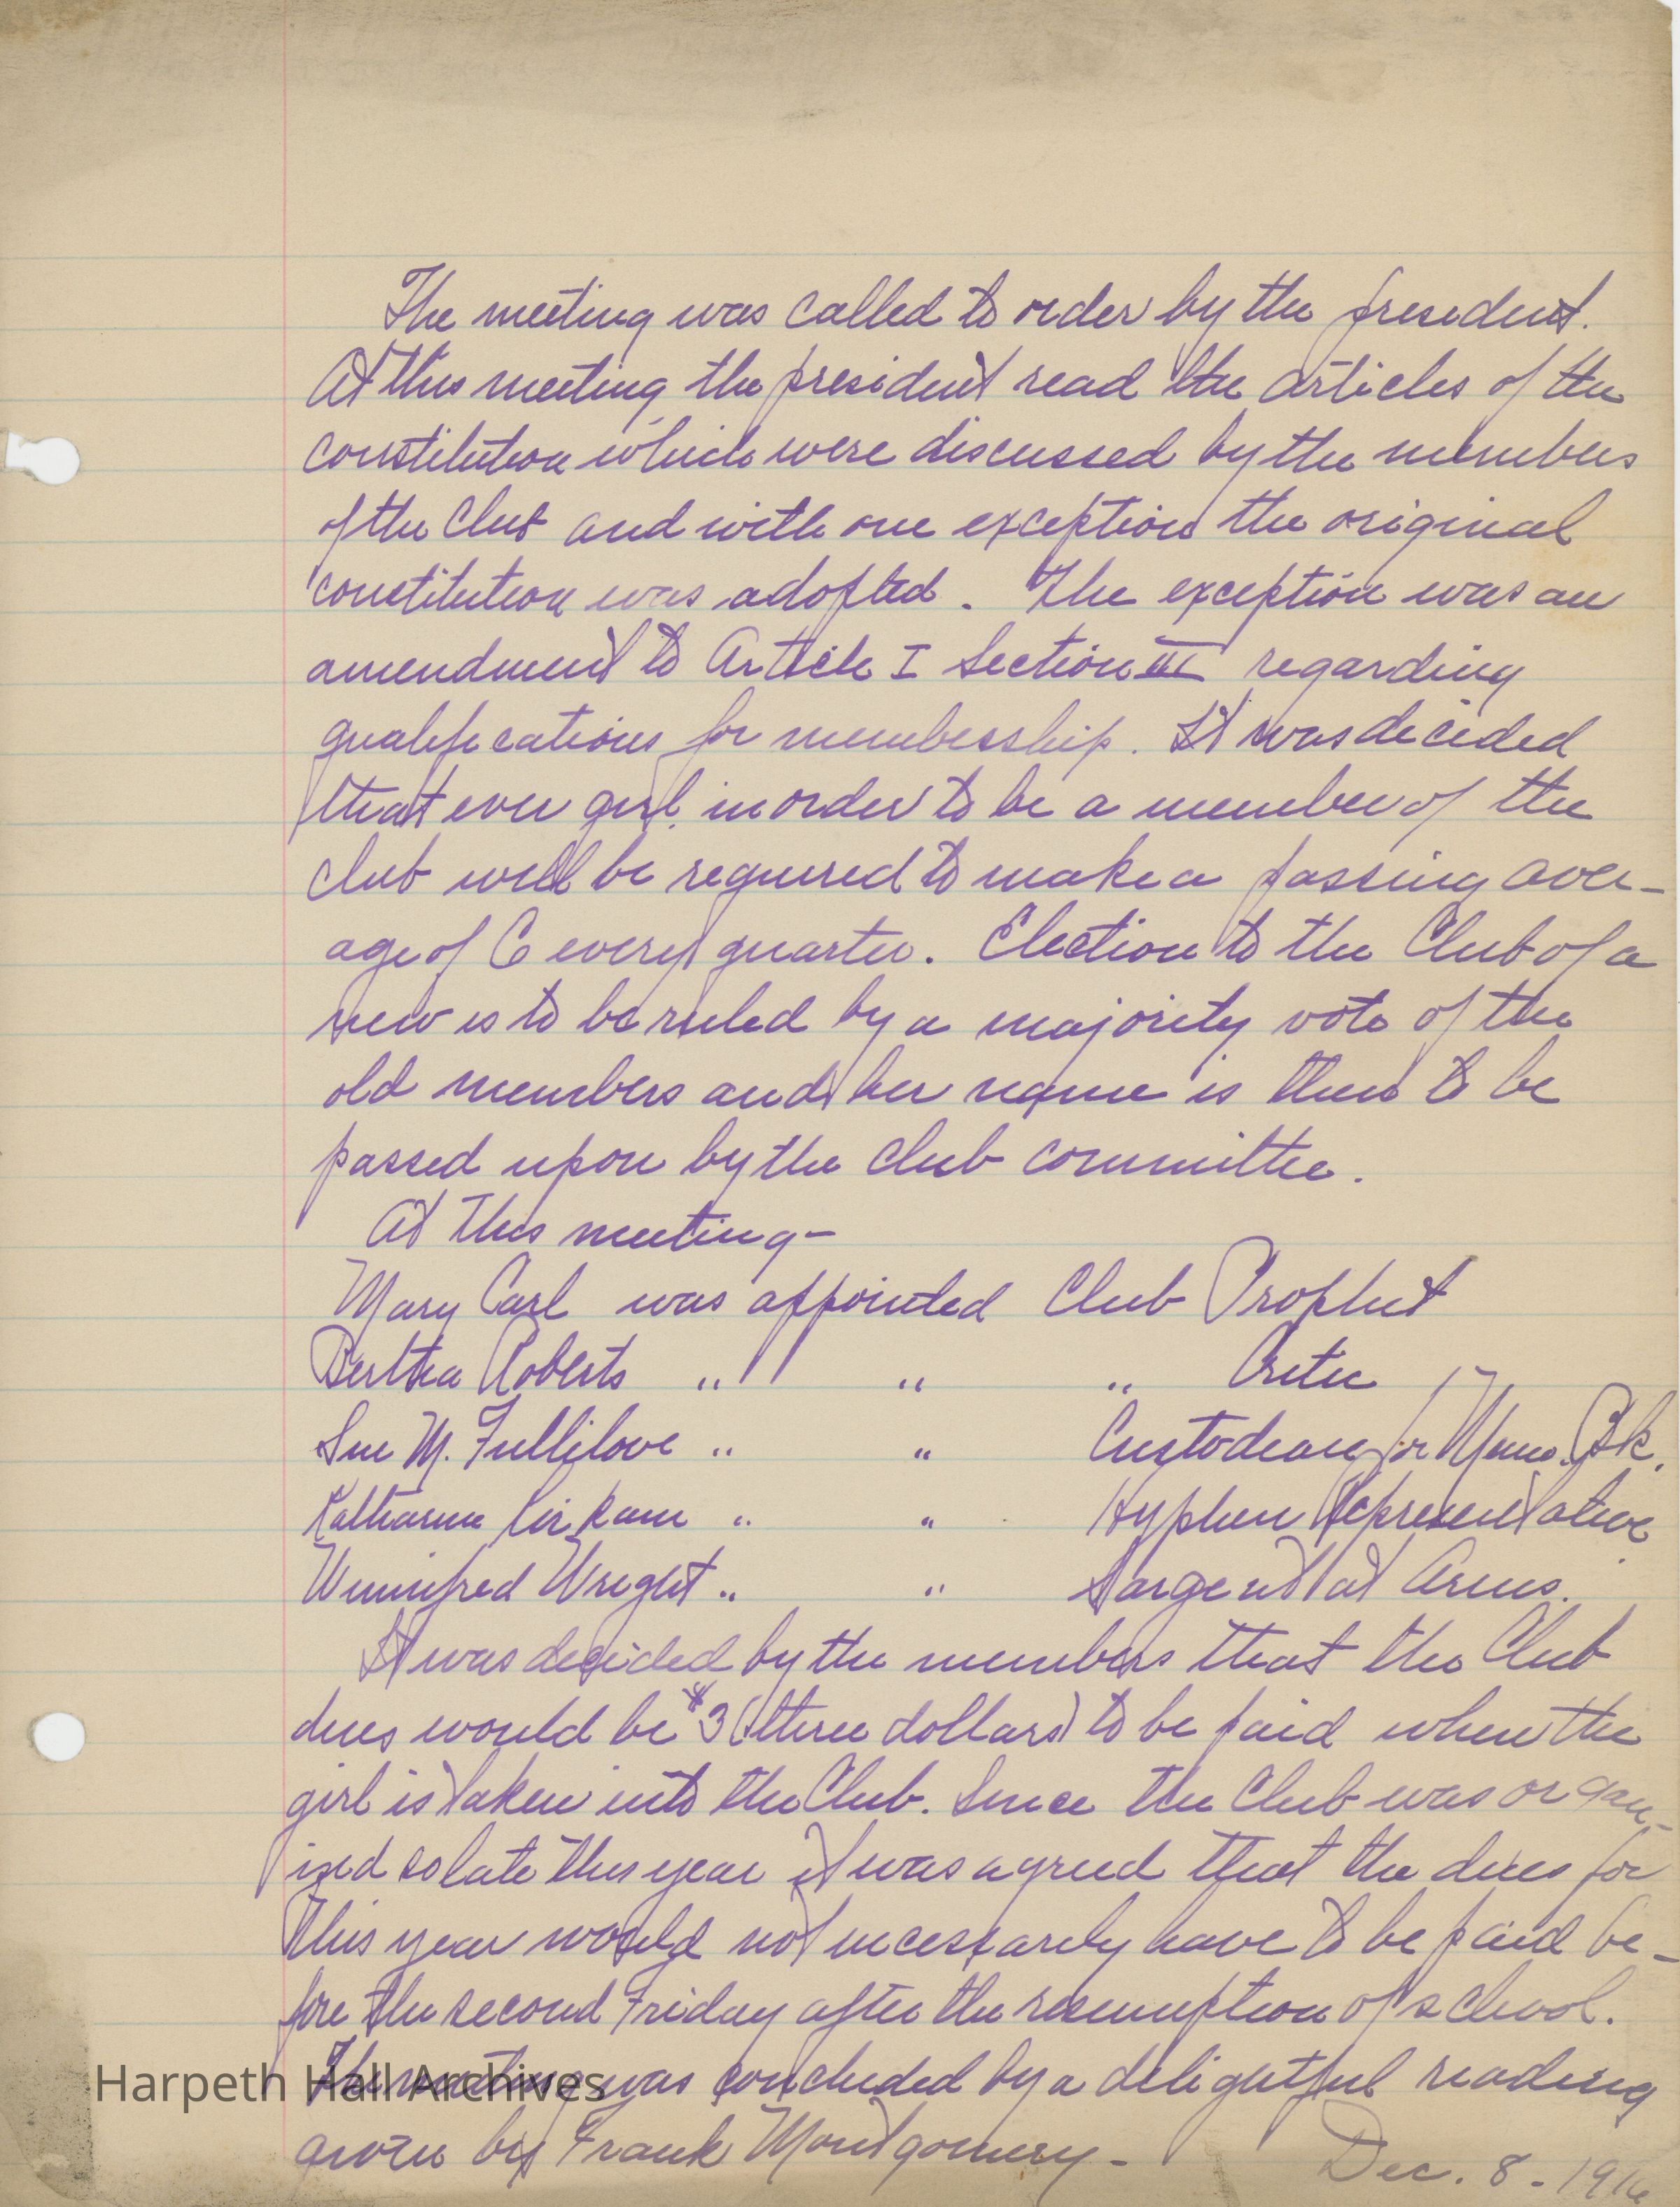 The meeting was called to order by the president.
At this meeting the president read the articles of the
constitution which were discussed by the members
of the Club and with one exception the original
constitution was adopted. The exception was an
amendment to Article I Section III regarding
qualifications for membership. It was decided
that ever girl in order to be a member of the
club will be required to make a passing aver-
age of C every quarter. Election to the Club of a
new is to be ruled by a majority vote of the
old members and her name is then to be
passed upon by the club committee.
At this meeting-
Mary Carl was appointed Club Prophet
Bertha Roberts " " " Critic
Sue M. Fullilove " " Custodian for Mem. Bk.
Katharine Kirkam " " Hyphen Representative
Winnifred Wright " " Sargent at Arms.
It was decided by the members that the Club
dues would be $3 (three dollars) to be paid when the
girl is taken into the Club. Since the Club was organ-
ized so late this year it was agreed that the dues for
this year would not necessarily have to be paid be-
fore the second Friday after the resumption of school.
The meeting was concluded by a delightful reading
given by Frank Montgomery-
Dec. 8 - 1916
Harpeth Hall Archives